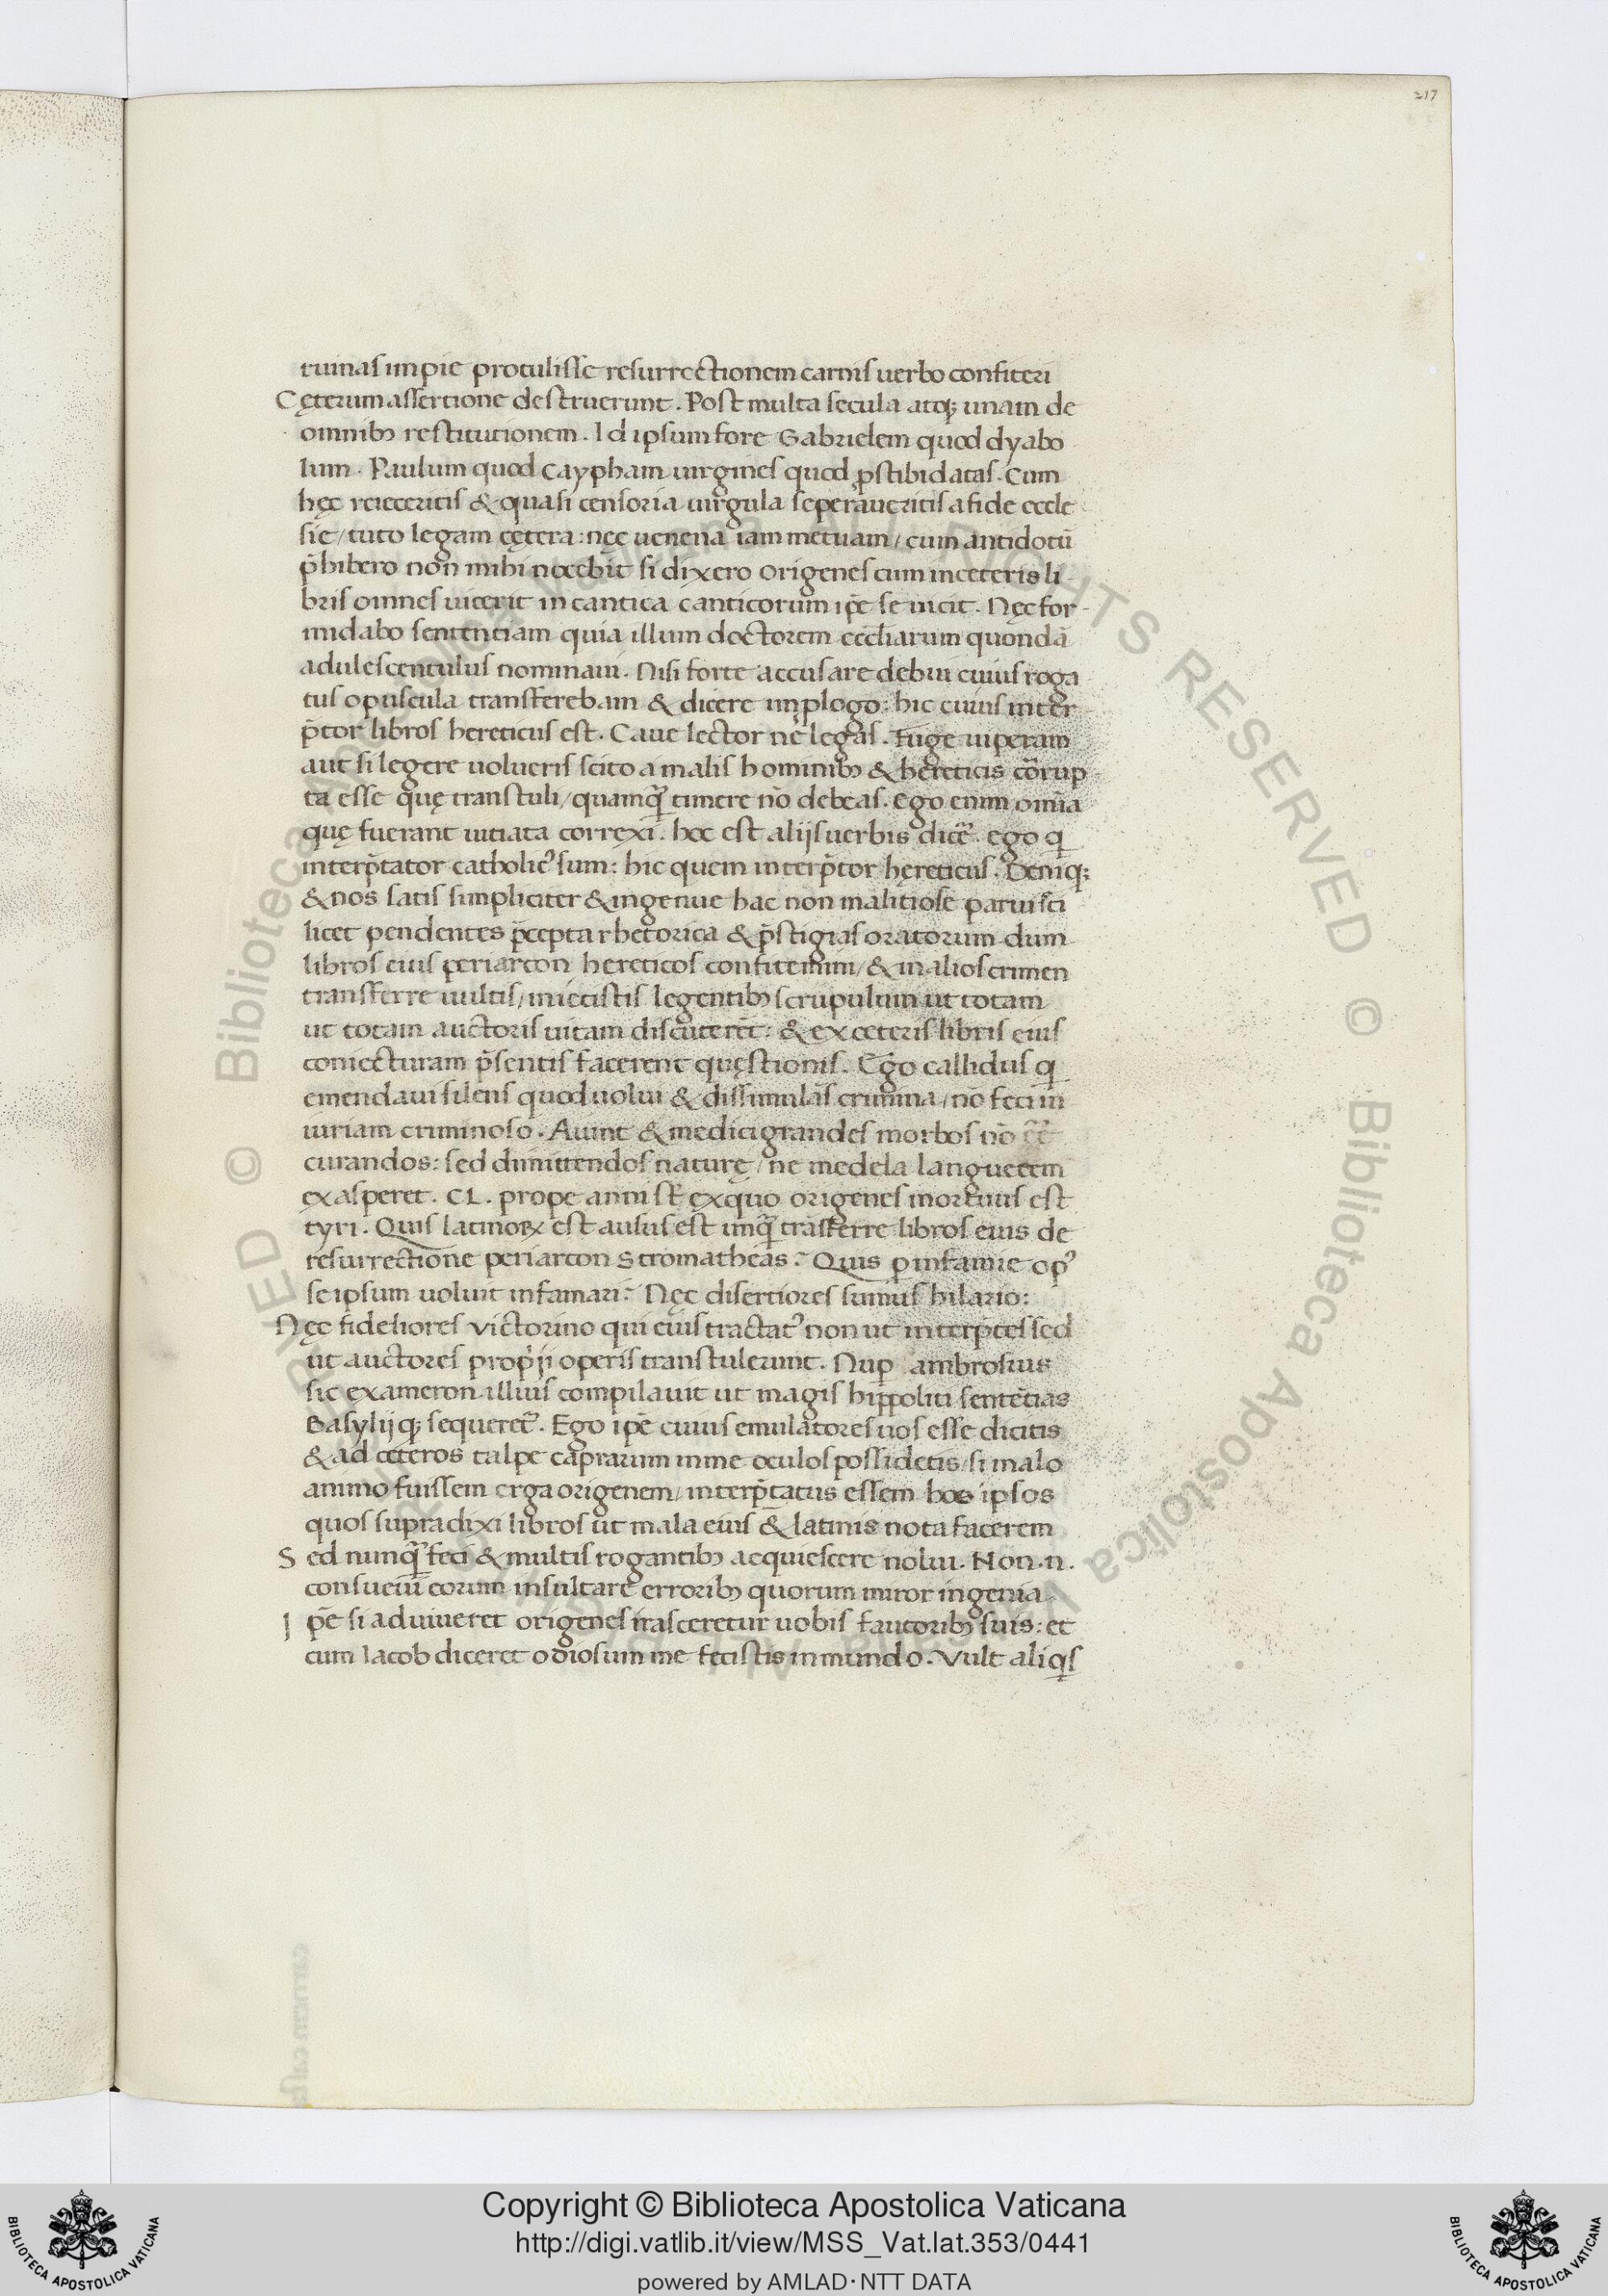 217
ruinas impie protulisse resurrectionem carnis uerbo confiteri
Cęterum assertione destruerunt. Post multa secula atq; unam de
omnib; restitutionem. Id ipsum fore Gabrielem quod dyabo
lum. Paulum quod Caypham uirgines quod p̱stibidatas. Cum
hęc reieceritis & quasi censoria uirgula seperaueritis a fide eccle
sie / tuto legam cętera: nęc uenena iam metuam / cum antidotū
p̄bibero non mihi nocebit si dixero Origenes cum in ceteris li
bris omnes uicerit in cantica canticorum ip̄e se uicit. Nęc for
midabo sententiam quia illum doctorem eccl̄iarum quondā
adulescentulus nominaui. Nisi forte accusare debui cuius roga
tus opuscula transferebam & dicere in plogo: hic cuius inter
p̄tor libros hereticus est. Caue lector ne legas. Fuge uiperam
aut si legere uolueris scito a malis hominib; & hereticis cōrup
ta esse quę transtuli / quamq̄ timere nō debeas. ego enim omīa
quę fuerant uitiata correxi. hoc est alijs uerbis dicē. ego q
interp̄tator catholic' sum: hic quem interp̄tor hęreticus. Deniq;
& nos satis simpliciter & ingenue hac non malitiose parui sci
licet pendentes p̄cepta rhetorica & p̄stigias oratorum dum
libros eius periarcon hereticos confitemini / & in alios crimen
transferre uultis / iniecistis legentib; scrupulum ut totam
ut totam auctoris uitam discuterēt: & ex ceteris libris eius
coniecturam p̄sentis facerent quęstionis. Ego callidus q
emendaui silens quod uolui & dissimulās crimina / nō feci in
iuriam criminoso. Aiunt & medici grandes morbos nō eē
curandos: sed dimittendos naturę / ne medela languetem
exasperet. CL. prope anni st̄ ex quo origenes mortuus est
tyri. Quis latinoꝝ est ausus est unq̄ trāsferre libros eius de
resurrectione periarcon Stromatheas? Quis p infamie op'
se ipsum uoluit infamari? Nęc disertiores sumus hilario:
Nęc fideliores Victorino qui eius tractat' non ut interp̄tes sed
ut auctores proprij operis transtulerunt. Nup ambrosius
sic exameron illius compilauit ut magis hippoliti sentētias
Basylijq; sequeret̄. Ego ip̄e cuius emulatores uos esse dicitis
& ad ceteros talpe caprarum in me oculos possidetis / si malo
animo fuissem erga origenem / interp̄tatus essem hos ipsos
quos supra dixi libros ut mala eius & latinis nota facerem
Sed nunq̄ feci & multis rogantib; acquiescere nolui. Non .n.
consueui eorum insultare errorib; quorum miror ingenia
Ip̄e si aduiueret origenes irasceretur uobis fautorib; suis: et
cum Iacob diceret odiosum me fecistis in mundo. Vult aliqs
Copyright © Biblioteca Apostolica Vaticana
http://digi.vatlib.it/view/MSS_Vat.lat.353/0441
powered by AMLAD·NTT DATA